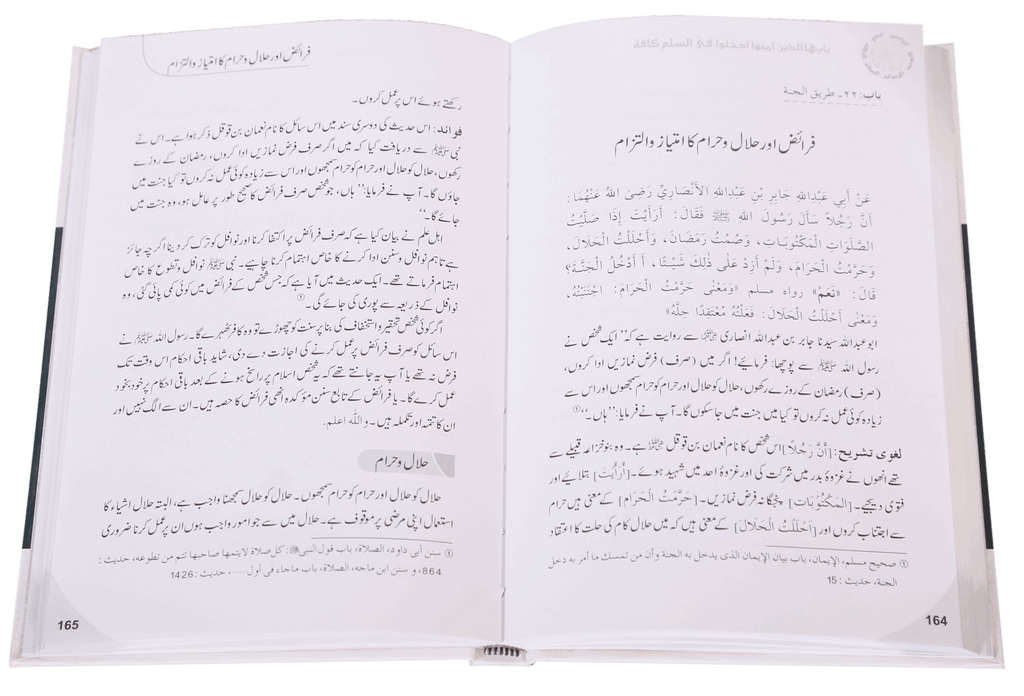 يايها الذين امنوا ادخلوا في السلم كافة
باب:۲۲۔ طريق الجنة
فرائض اور حلال و حرام کا امتیاز و التزام
عَنْ أَبِي عَبْدِاللهِ جَابِرِ بْنِ عَبْدِاللهِ الْأَنْصَارِيِّ رَضِيَ اللهُ عَنْهُمَا:
أَنَّ رَجُلًا سَأَلَ رَسُولَ اللهِ ﷺ فَقَالَ: أَرَأَيْتَ إِذَا صَلَّيْتُ
الصَّلَوَاتِ الْمَكْتُوبَاتِ، وَصُمْتُ رَمَضَانَ، وَأَحْلَلْتُ الْحَلَالَ،
وَحَرَّمْتُ الْحَرَامَ، وَلَمْ أَزِدْ عَلَى ذَلِكَ شَيْئًا، أَأَدْخُلُ الْجَنَّةَ؟
قَالَ: «نَعَمْ» رواه مسلم «وَمَعْنَى حَرَّمْتُ الْحَرَامَ: اجْتَنَبْتُهُ،
وَمَعْنَى أَحْلَلْتُ الْحَلَالَ: فَعَلْتُهُ مُعْتَقِدًا حِلَّهُ»
ابوعبداللہ سیدنا جابر بن عبداللہ انصاری ؓ سے روایت ہے کہ ”ایک شخص نے
رسول اللہ ﷺ سے پوچھا: فرمائیے! اگر میں (صرف) فرض نمازیں ادا کروں،
(صرف) رمضان کے روزے رکھوں، حلال کو حلال اور حرام کو حرام سمجھوں اور اس سے
زیادہ کوئی عمل نہ کروں تو کیا میں جنت میں جا سکوں گا۔ آپ نے فرمایا: ”ہاں۔“①
لغوی تشریح: [أَنَّ رَجُلًا] اس شخص کا نام نعمان بن قوقل ؓ ہے۔ وہ بنو خزاعہ قبیلے سے
تھے انھوں نے غزوۂ بدر میں شرکت کی اور غزوۂ احد میں شہید ہوئے۔ [أَرَأَيْتَ] بتلائیے اور
فتوی دیجیے۔ [الْمَكْتُوبَاتِ] پنجگانہ فرض نمازیں۔ [حَرَّمْتُ الْحَرَامَ] کے معنی ہیں حرام
سے اجتناب کروں اور [أَحْلَلْتُ الْحَلَالَ] کے معنی ہیں کہ میں حلال کام کی حلت کا اعتقاد
① صحيح مسلم، الإيمان، باب بيان الإيمان الذى يدخل به الجنة وأن من تمسك ما أمر به دخل
الجنة، حديث: 15
164
فرائض اور حلال و حرام کا امتیاز و التزام
رکھتے ہوئے اس پر عمل کروں۔
فوائد: اس حدیث کی دوسری سند میں اس سائل کا نام نعمان بن قوقل ذکر ہوا ہے۔ اس نے
نبی ﷺ سے دریافت کیا کہ میں اگر صرف فرض نمازیں ادا کروں، رمضان کے روزے
رکھوں، حلال کو حلال اور حرام کو حرام سمجھوں اور اس سے زیادہ کوئی عمل نہ کروں تو کیا جنت میں
جاؤں گا۔ آپ نے فرمایا: ”ہاں، جو شخص صرف فرائض کا صحیح طور پر عامل ہو، وہ جنت میں
جائے گا۔“
اہل علم نے بیان کیا ہے کہ صرف فرائض پر اکتفا کرنا اور نوافل کو ترک کر دینا اگرچہ جائز
ہے تاہم نوافل و سنن ادا کرنے کا خاص اہتمام کرنا چاہیے۔ نبی ﷺ نوافل و تطوع کا خاص
اہتمام فرماتے تھے۔ ایک حدیث میں آیا ہے کہ جس شخص کے فرائض میں کوئی کمی پائی گئی، وہ
نوافل کے ذریعہ سے پوری کی جائے گی۔①
اگر کوئی شخص تحقیر و استخفاف کی بنا پر سنت کو چھوڑے تو وہ کافر ٹھہرے گا۔ رسول اللہ ﷺ نے
اس سائل کو صرف فرائض پر عمل کرنے کی اجازت دے دی، شاید باقی احکام اس وقت تک
فرض نہ تھے یا آپ یہ جانتے تھے کہ یہ شخص اسلام پر راسخ ہونے کے بعد باقی احکام پر خود بخود
عمل کرے گا۔ یا فرائض کے تابع سنن مؤکدہ انھی فرائض کا حصہ ہیں۔ ان سے الگ نہیں اور
ان کا تتمہ اور تکملہ ہیں۔ واللہ اعلم.
حلال و حرام
حلال کو حلال اور حرام کو حرام سمجھوں۔ حلال کو حلال سمجھنا واجب ہے، البتہ حلال اشیاء کا
استعمال اپنی مرضی پر موقوف ہے۔ حلال میں سے جو امور واجب ہوں ان پر عمل کرنا ضروری
① سنن أبي داود، الصلاة، باب قول النبي ﷺ: كل صلاة لا يتمها صاحبها تتم من تطوعه، حديث:
864، و سنن ابن ماجه، الصلاة، باب ماجاء في أول.....، حديث: 1426
165